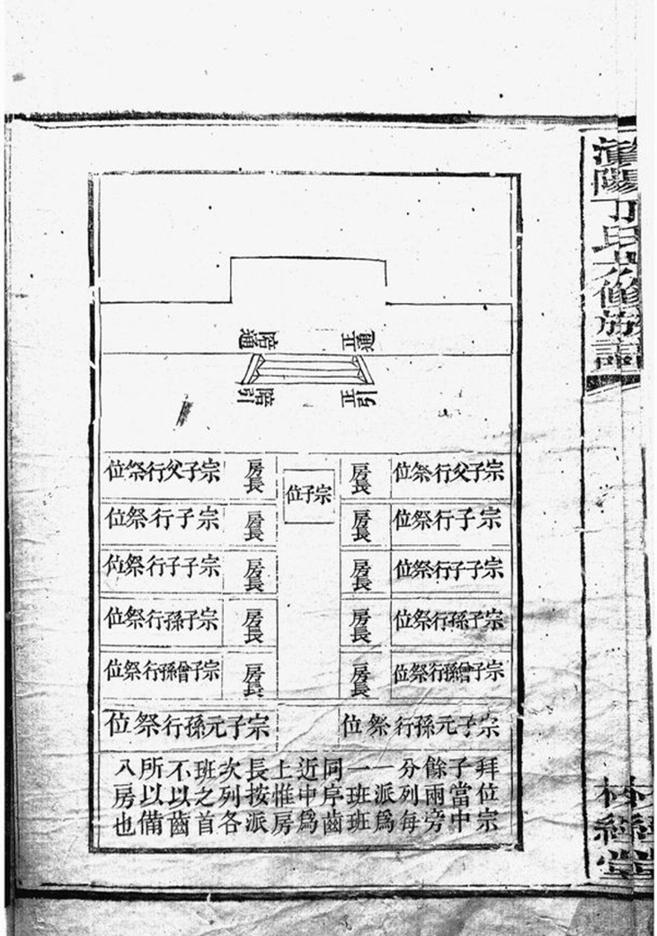 陽丁氏修族譜
堂
通
階
引
宗子父行祭位
房長
宗子位
房長
宗子父行祭位
宗子行祭位
房長
房長
宗子行祭位
宗子子行祭位
房長
房長
宗子子行祭位
宗子孫行祭位
房長
房長
宗子孫行祭位
宗子曾孫行祭位
房長
房長
宗子曾孫行祭位
宗子元孫行祭位
宗子元孫行祭位
拜位宗
子當中
餘兩旁
分列每
一派爲
一班班
同序齒
近中爲
上惟房
長按派
次列各
班之首
不以齒
所以備
八房也